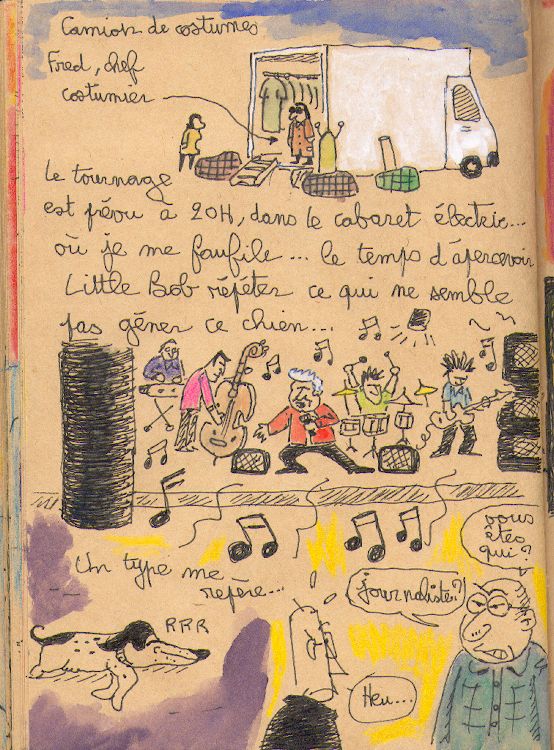 Camion de costumes
Fred, chef
costumier
Le tournage
est prévu à 20H, dans le cabaret électric...
où je me faufile... le temps d'apercevoir
Little Bob répéter ce qui ne semble
pas gêner ce chien...
Un type me
repère...
RRR
vous
êtes
qui?
journaliste?
Heu...